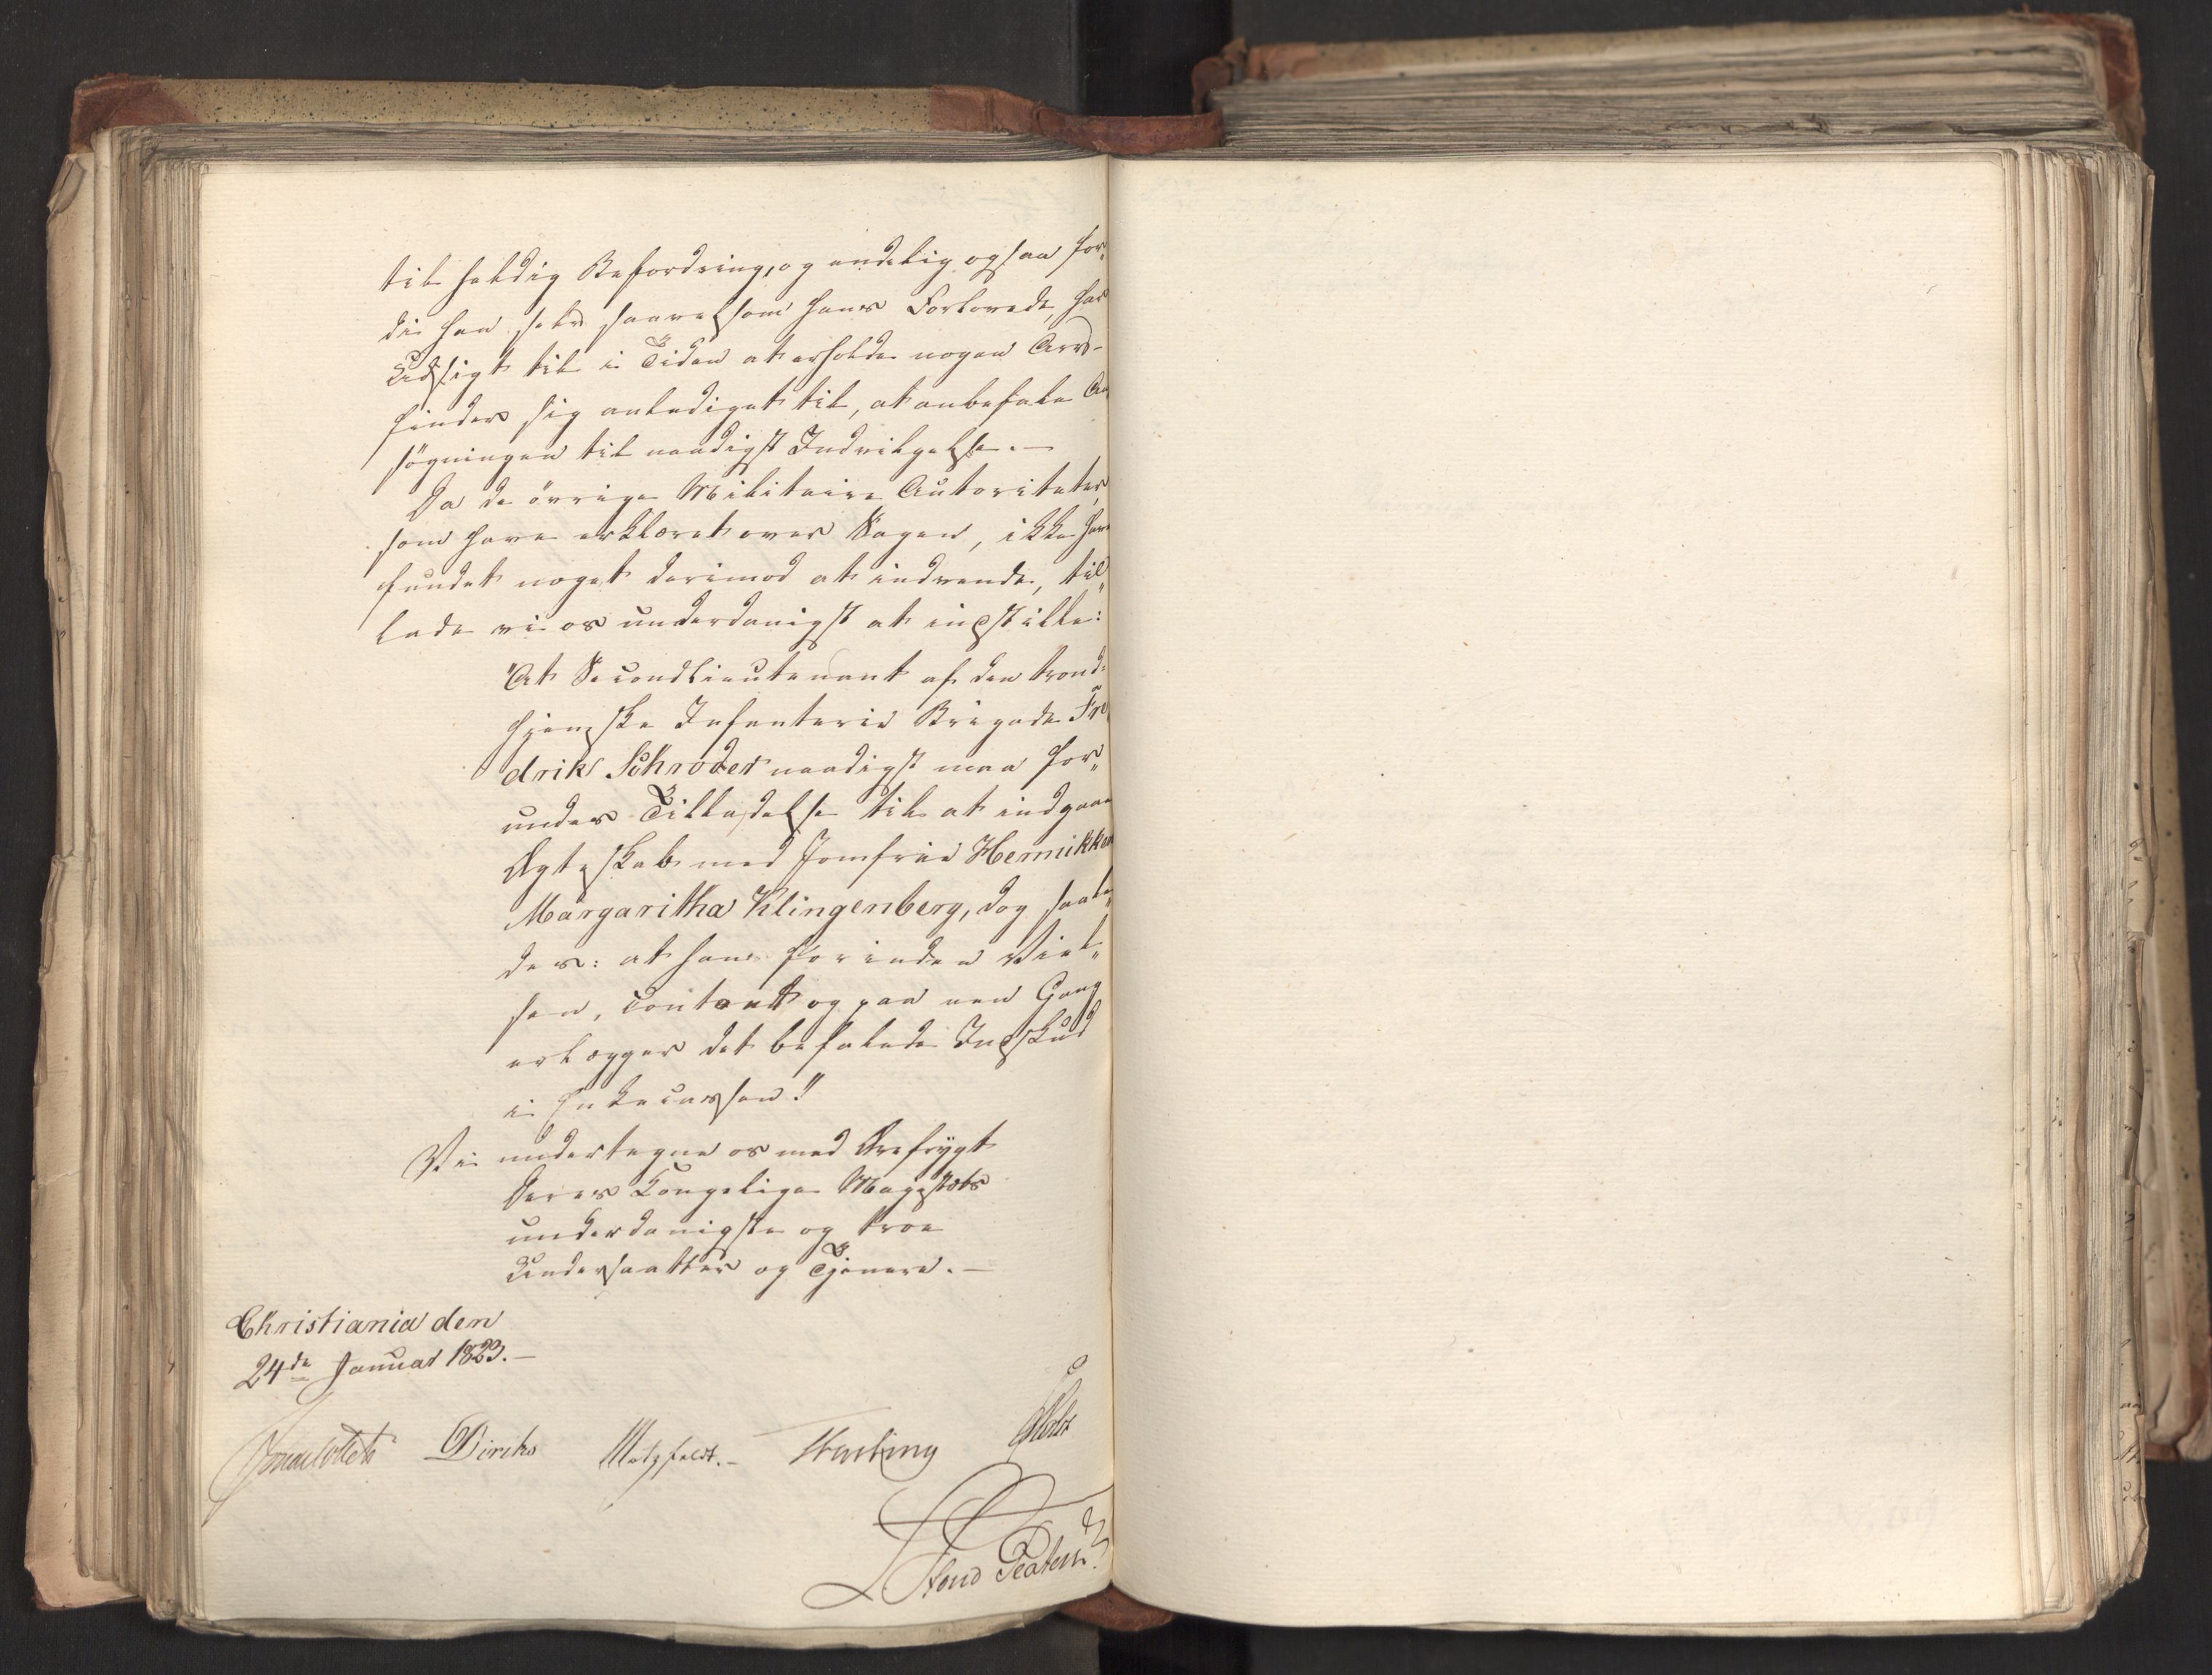 til heldig Befordring, og endelig ogsaa for„
di han selv saavelsom hans Forlovede, har
Udsigt til i Tiden at erholde nogen Arv-
finder sig anlediget til, at anbefale An
søgningen til naadigst Indvilgelse.—
Da de øvrige Militaire Autoriteter,
som have erklæret over Sagen, ikke have
fundet noget derimod at indvende, til„
lade vi os underdanigst at indstille:
"At Secondlieutenant af den trond:
hjemske Infanterie Brigade Fre
drik Schrøder naadigst maa for„
undes Tilladelse til at indgaae
Ægteskab med Jomfrue Hemikken
Margaritha Klingenberg, dog saale„
des: at han forinden Viel„
sen, contant og paa een Gang
erlægger det befalede Indskud
i Enkecassen."
Vi undertegne os med Ærefrygt
Deres Kongelige Majestæts
underdanigste og troe
Undersaatter og Tjenere.—
Christiania den
24de Januar 1823.—
Diriks Motzfeldt.- Holst